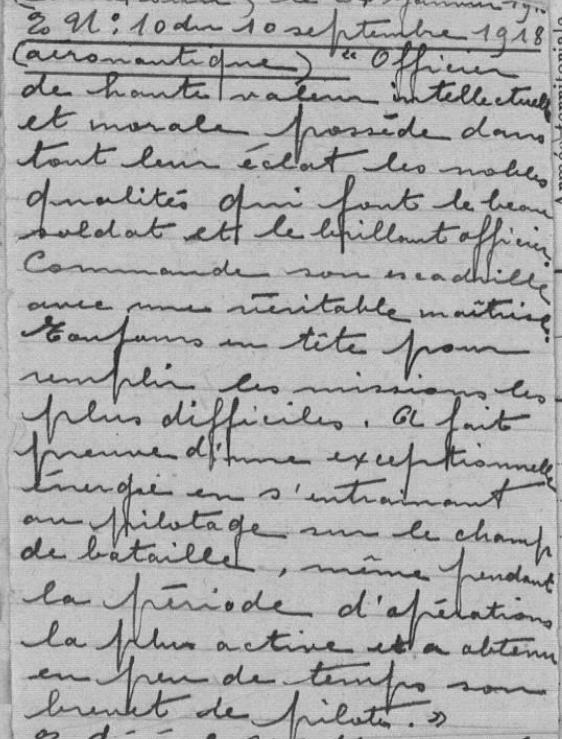 janvier 19
N° 10 du 10 septembre 1918
(aéronautique) " Officier
de haute valeur intellectuelle
et morale possède dans
tout leur éclat les nobles
qualités qui font le beau
soldat et le brillant officier.
Commande son escadrille
avec une véritable maîtrise.
Toujours en tête pour
remplir les missions les
plus difficiles. A fait
preuve d'une exceptionnelle
énergie en s'entrainant
au pilotage sur le champ
de bataille, même pendant
la période d'opérations
la plus active et a obtenu
en peu de temps son
brevet de pilote. »